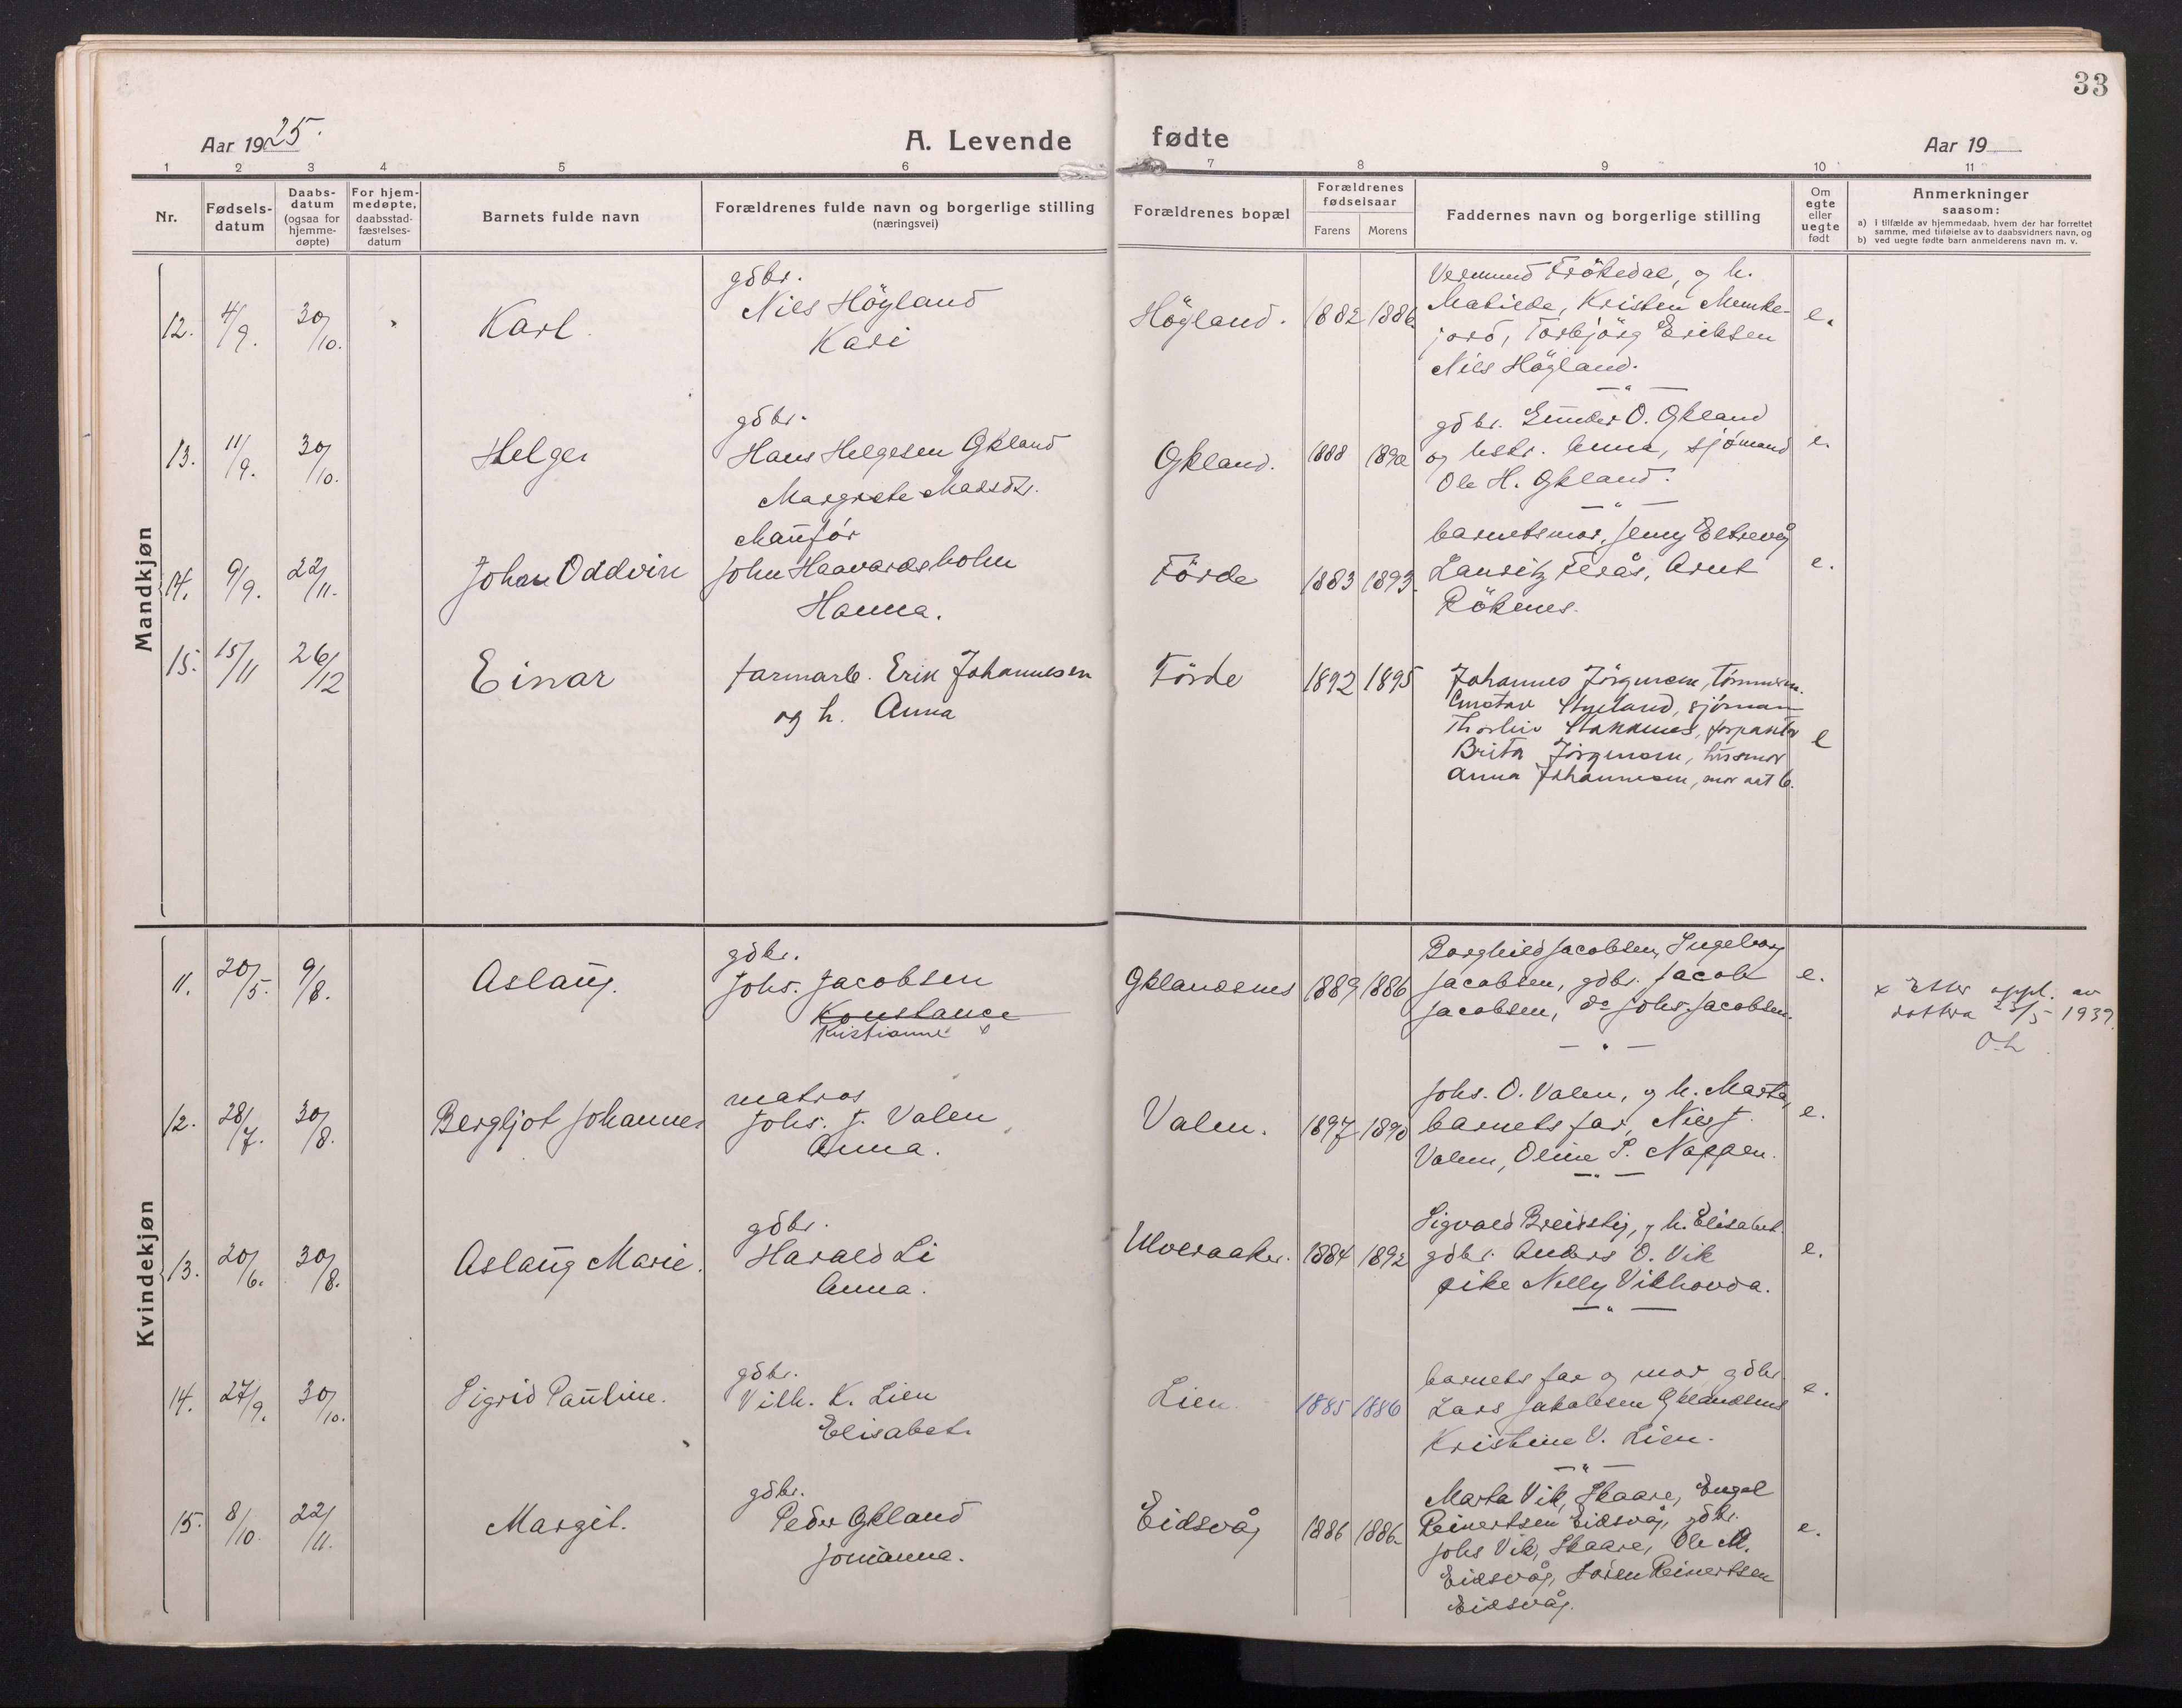 33
Aar 1925.
A. Levende fødte
Aar 19
1 2 3 4 5 6 7 8 9 10 11
Nr.
Fødsels-
datum
Daabs-
datum
(ogsaa for
hjemme-
døpte)
For hjem-
medøpte,
daabsstad-
fæstelses-
datum
Barnets fulde navn
Forældrenes fulde navn og borgerlige stilling
(næringsvei)
Forældrenes bopæl
Forældrenes
fødselsaar
Farens Morens
Faddernes navn og borgerlige stilling
Om
egte
eller
uegte
født
Anmerkninger
saasom:
a) i tilfælde av hjemmedaab, hvem der har forrettet
samme, med tilføielse av to daabsvidners navn, og
b) ved uegte fødte barn anmelderens navn m. v.
Mandkjøn
12. 4/9. 30/10.
Karl
gdbr.
Nils Höyland
Kari
Höyland. 1882 1886.
Vermund Frökedal, og h.
Matilde, Kristen Munke-
jord, Torbjörg Eriksen
Nils Höyland.
e.
13. 11/9. 30/10.
Helge
gdbr.
Hans Helgesen Økland
Margrete Marsdtr.
Økland. 1888 1890
gdbr. Gunder O. Økland
og hstr. Anna, sjömand
Ole H. Økland.
e.
14. 9/9. 22/11.
Johan Oddvin
John Haavardsholm
Hanna.
Förde 1883 1893.
barnetsmor, Jenny Eltrevåg
Lauritz Ferås, Arnt
Rökenes.
e.
15. 15/11 26/12
Einar
farmarb. Erik Johannesen
og h. Anna
Förde 1892 1895
Johannes Jörgensen, tömmerm.
Gustav Hyeland, sjöman
Brita Jörgensen, husmor
Anna Johannesen, mor aat b.
e
Kvindekjøn
11. 20/5. 9/8.
Aslaug.
gdbr.
Johs. Jacobsen
Konstance
Kristianne x
Øklandsnes 1889 1886
Borghild Jacobsen, Ingeborg
Jacobsen, gdbr. Jacob
Jacobsen, do Johs. Jacobsen.
e.
x Etter oppl. av
dottra 23/5 1939.
12. 28/7. 30/8.
Bergljot Johanne
matros
Johs. J. Valen
Anna.
Valen. 1897 1890
Johs. O. Valen, og h. Marta,
barnets far, Nils J.
Valen, Oline P. Nappen.
e.
13. 20/6. 30/8.
Aslaug Marie.
gdbr.
Harald Li
Anna.
Ulveraaker. 1884 1892
Sigvald Breidstig, og h. Elisabet.
gdbr. Anders O. Vik
pike Nelly Vikhovda.
e.
14. 27/9. 30/10.
Sigrid Pauline.
gdbr.
Vilh. K. Lien
Elisabet.
Lien. 1885 1886
barnets far og mor gdbr.
Lars Jakobsen Øklandsnes
Kristine V. Lien.
e.
15. 8/10. 22/11.
Margit.
gdbr.
Peder Økland
Jonianna.
Eidsvåg 1886 1886.
Marta Vik, Skaare, Engel
Reinertsen Eidsvåg, gdbr.
Johs Vik, Skaare, Ole M.
Eidsvåg, Sören Reinertsen
Eidsvåg.
e.